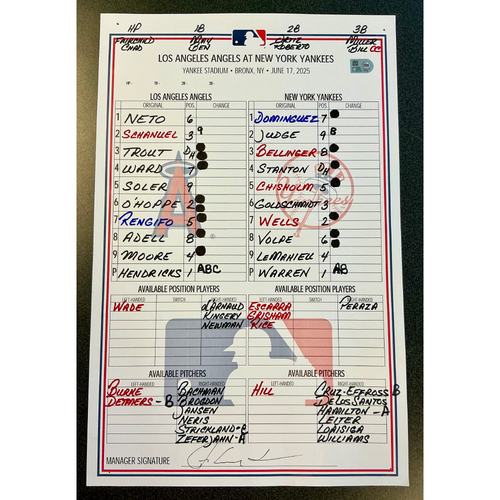 HP 1B 2B 3B
FAIRCHILD MAY ORTIZ MILLER
CHAD BEN ROBERTO BILL CC
LOS ANGELES ANGELS AT NEW YORK YANKEES
YANKEE STADIUM • BRONX, NY • JUNE 17, 2025
HP- 1B- 2B- 3B-
LOS ANGELES ANGELS
ORIGINAL POS. CHANGE
1 NETO 6
2 SCHANUEL 3 9
3 TROUT DH
4 WARD 7
5 SOLER 9
6 O'HOPPE 2
7 RENGIFO 5
8 ADELL 8
9 MOORE 4
P HENDRICKS 1 ABC
NEW YORK YANKEES
ORIGINAL POS. CHANGE
1 DOMINGUEZ 7
2 JUDGE 9 B
3 BELLINGER 8
4 STANTON DH
5 CHISHOLM 5
6 GOLDSCHMIDT 3
7 WELLS 2
8 VOLPE 6
9 LEMAHIEU 4
P WARREN 1 AB
AVAILABLE POSITION PLAYERS
LEFT-HANDED SWITCH RIGHT-HANDED
WADE d'ARNAUD
KINGERY
NEWMAN
AVAILABLE POSITION PLAYERS
LEFT-HANDED SWITCH RIGHT-HANDED
ESCARRA PERAZA
GRISHAM
RICE
AVAILABLE PITCHERS
LEFT-HANDED RIGHT-HANDED
BURKE BACHMAN
DETMERS-B BROGDON
JANSEN
NERIS
STRICKLAND-C
ZEFERJAHN-A
AVAILABLE PITCHERS
LEFT-HANDED RIGHT-HANDED
HILL CRUZ-EFFROSS B
DE LOS SANTOS
HAMILTON-A
LEITER
LOAISIGA
WILLIAMS
MANAGER SIGNATURE